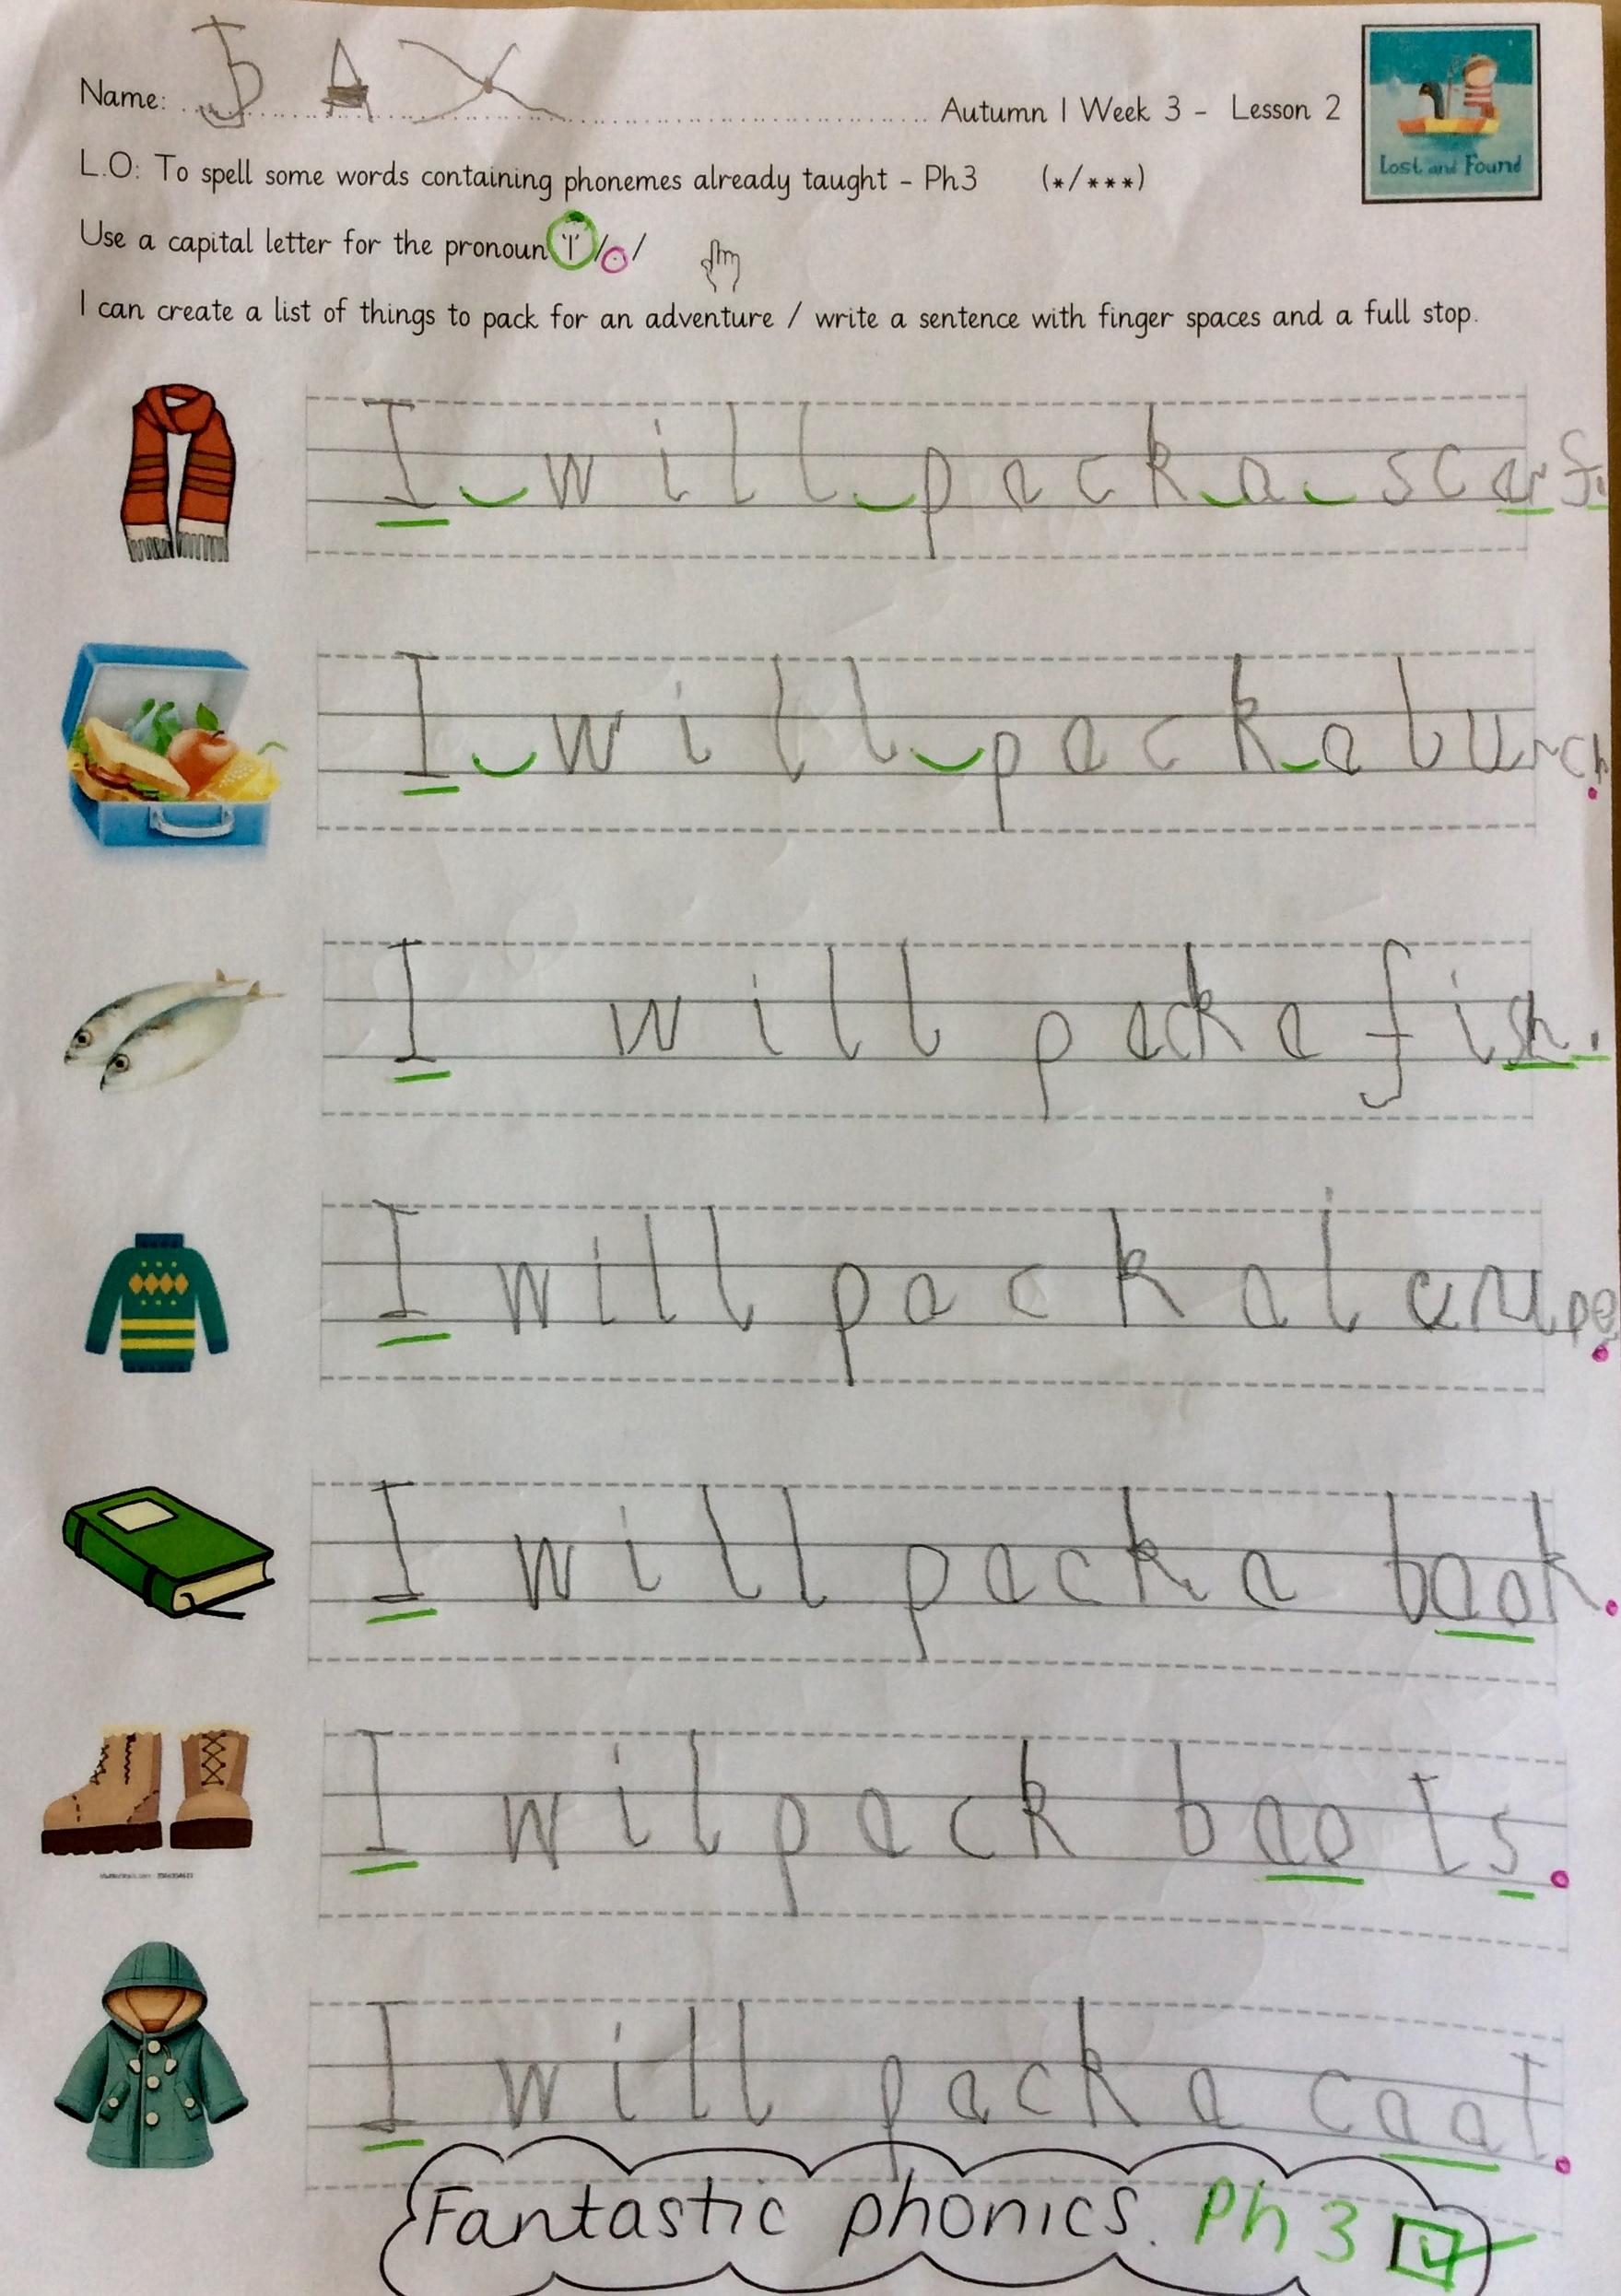 Name: JAX Autumn 1 Week 3 - Lesson 2
Lost and Found
L.O: To spell some words containing phonemes already taught - Ph3 (*/***)
Use a capital letter for the pronoun 'I'/./
I can create a list of things to pack for an adventure / write a sentence with finger spaces and a full stop.
I will pack a scarf.
I will pack a lunch
I will pack a fish.
I will pack a
I will pack a book.
I wil pack boots.
I will pack a coat.
Fantastic phonics. Ph 3